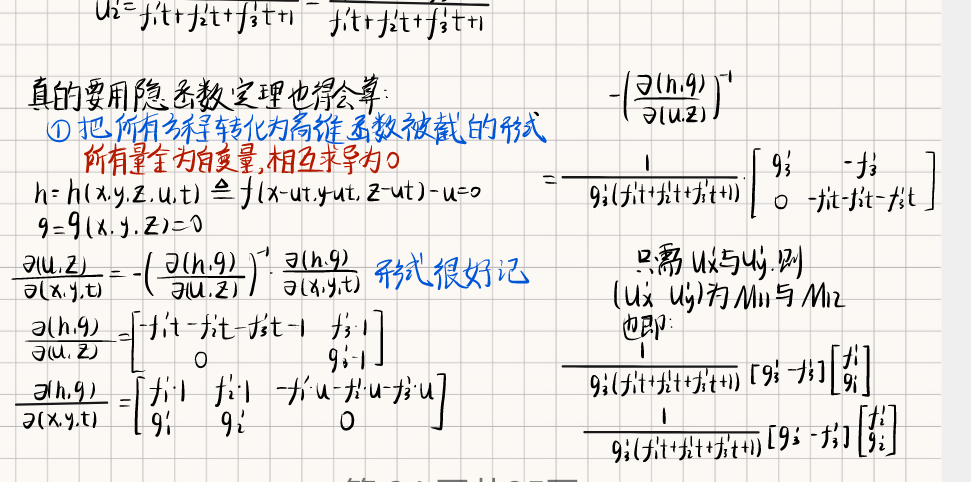 u₂' = / f₁'t+f₂'t+f₃'t+1 - / f₁'t+f₂'t+f₃'t+1
真的要用隐函数定理也得会算:
① 把所有方程转化为高维函数被截的形式
所有量全为自变量,相互求导为0
h=h(x,y,z,u,t) ≜ f(x-ut,y-ut,z-ut)-u=0
g=g(x,y,z)=0
∂(u,z)/∂(x,y,t) = -(∂(h,g)/∂(u,z))⁻¹ · ∂(h,g)/∂(x,y,t) 形式很好记
∂(h,g)/∂(u,z) = [-f₁'t-f₂'t-f₃'t-1 f₃'·1
0 g₃'·1]
∂(h,g)/∂(x,y,t) = [f₁'·1 f₂'·1 -f₁'·u-f₂'·u-f₃'·u
g₁' g₂' 0]
-(∂(h,g)/∂(u,z))⁻¹
= 1/g₃'(f₁'t+f₂'t+f₃'t+1) · [g₃' -f₃'
0 -f₁'t-f₂'t-f₃'t]
只需 ux'与uy'.则
(ux' uy')为M11与M12
也即:
1/g₃'(f₁'t+f₂'t+f₃'t+1) [g₃' -f₃'] [f₁' g₁']
1/g₃'(f₁'t+f₂'t+f₃'t+1) [g₃' -f₃'] [f₂' g₂']